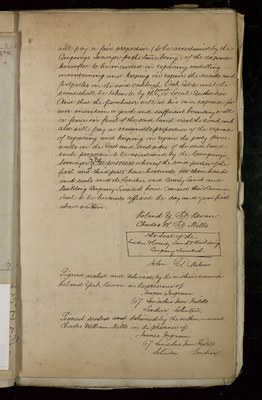 will pay a fair proportion (to be ascertained by the
Company's Surveyor for the time being) of the expense
hereafter to be incurred in repairing
maintaining and keeping in repair the roads and
footpaths in the said until the
same shall be taken to by the Local Authorities
And that the purchaser will at his own expense for
ever maintain a good and sufficient boundary wall
or fence in front of the said land next the road and
also will pay a reasonable proportion of the expense
of repairing and keeping in repair the party fence
walls on the West and East sides of the said land
such proportion to be ascertained by the Company's
Surveyor In Witness whereof the said parties of the
first and third parts have hereunto set their hands
and seals and the London and County Land and
Building Company Limited have caused their Common
Seal to be hereunto affixed the day and year first
above written
Roland Y. Bevan
Charles W. Mills
The Seal of the
London & County Land & Building
Company Limited
John
Signed sealed and delivered by the within named
Roland Yorke Bevan in the presence of
James Ingram
67 Lincolns Inn Fields
London Solicitor
Signed sealed and delivered by the within named
Charles William Mills in the presence of
James Ingram
67 Lincolns Inn Fields
Solicitor London